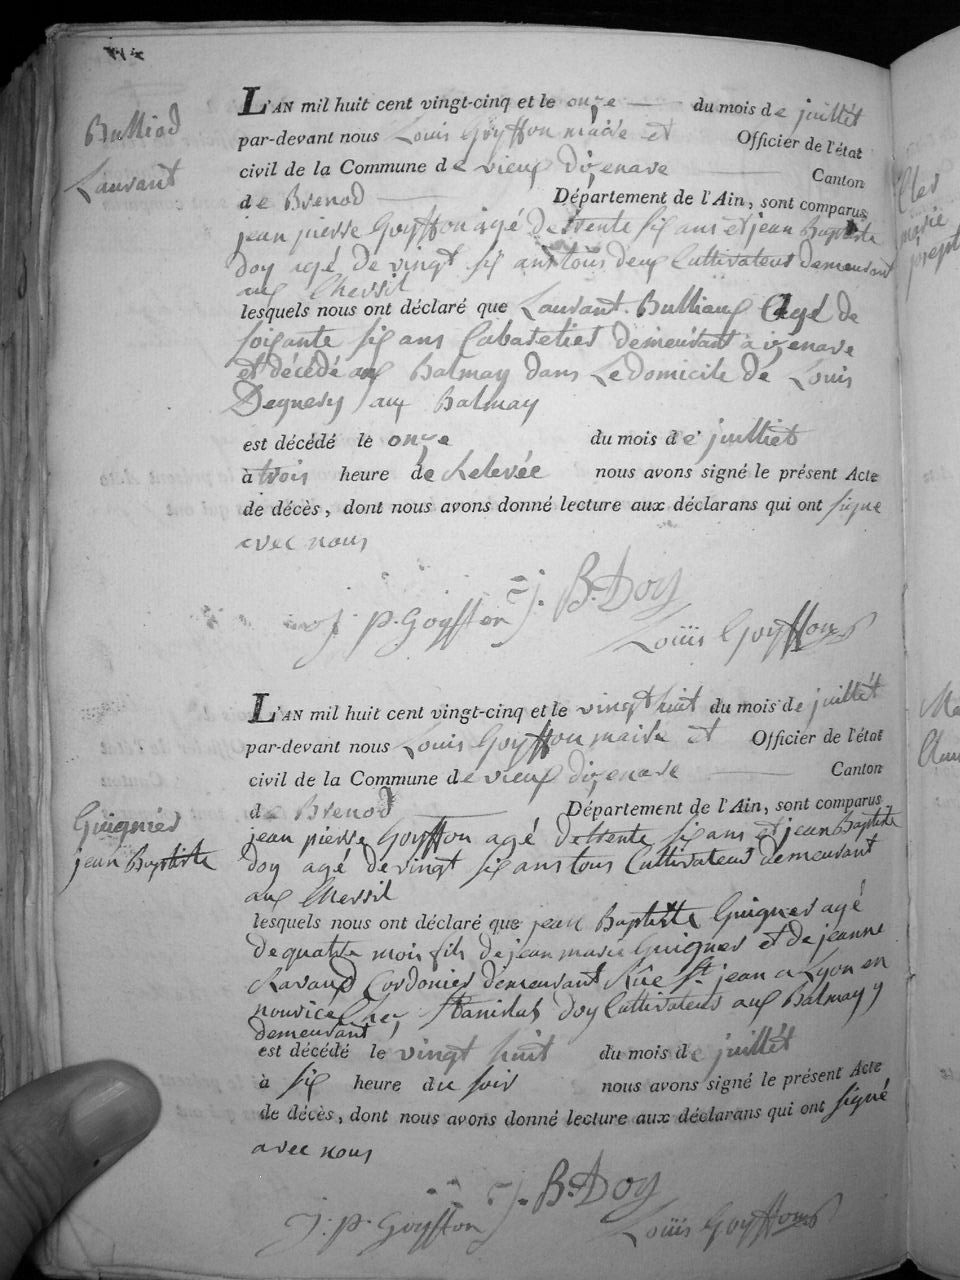 Bulliod
Laurant
L'AN mil huit cent vingt-cinq et le onze du mois de juillét
par-devant nous Louis Goÿffon maire et Officier de l'état
civil de la Commune de vieux d'izenave Canton
de Brenod Département de l'Ain, sont comparus
jean pierre Goyffon agé de trente six ans et jean Baptiste
doy agé de vingt six ans tous deux Cultivateurs demeurant
aux Chessit
lesquels nous ont déclaré que Laurant Bulliaux agé de
soixante six ans Cabaretier demeurant à izenave
et décédé aux Balmay dans Le domicile de Louis
aux Balmay
est décédé le onze du mois de juilliet
à trois heure de Relevée nous avons signé le présent Acte
de décès, dont nous avons donné lecture aux déclarans qui ont signe
avec nous
J. P. Goyffon J. B. Doy
Louis Goyffon
L'AN mil huit cent vingt-cinq et le vingt huit du mois de juillét
par-devant nous Louis Goyffon maire et Officier de l'état
civil de la Commune de vieux d'izenave Canton
de Brenod Département de l'Ain, sont comparus
Guignier
jean Baptiste
jean pierre Goyffon agé de trente six ans et jean Baptiste
doy agé de vingt six ans tous Cultivateurs demeurant
aux Chessit
lesquels nous ont déclaré que jean Baptiste Guignier agé
de quatre mois fils de jean marie Guignier et de jeanne
Ravaud Cordonier demeurant Rûe St. jean a Lyon en
nourice Chez Stanislas doy Cultivateurs aux Balmay y
demeurant
est décédé le vingt huit du mois de juillét
à six heure du soir nous avons signé le présent Acte
de décès, dont nous avons donné lecture aux déclarans qui ont signé
avec nous
J. P. Goyffon J. B. Doy
Louis Goyffon
marie